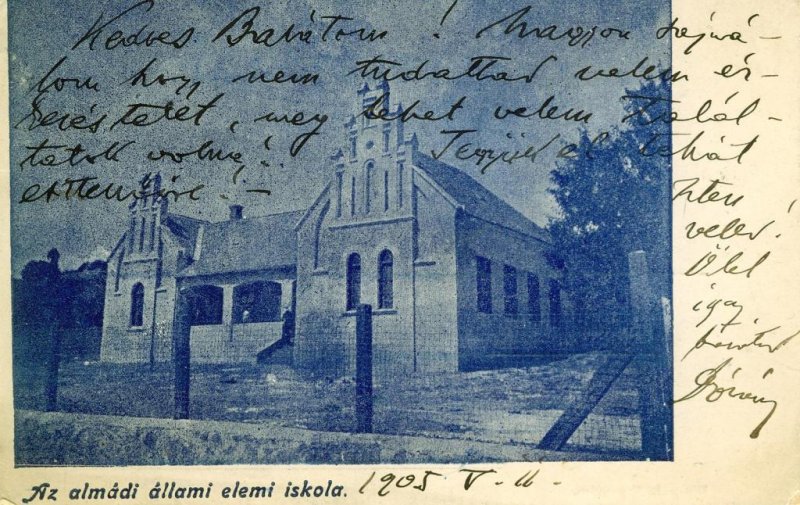 Kedves Barátom! Nagyon sajná-
lom hogy nem tudattad velem ér-
kezésedet, meg lehet velem talál-
tatok volna! Tegyük el tehát
Isten
veled!
Ölel
igaz
barátod
Az almádi állami elemi iskola. 1905 V. 11.